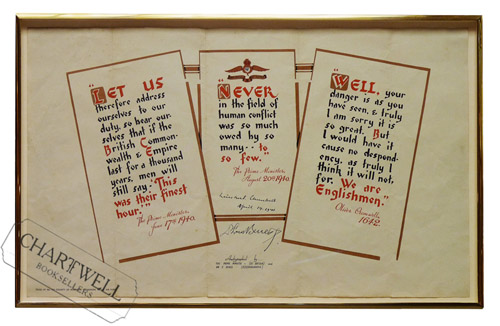 "LET US
therefore address
ourselves to our
duty, so bear our-
selves that if the
British Common-
wealth & Empire
last for a thousand
years, men will
still say. "This
was their finest
hour."
The Prime Minister
June 17th 1940.
"NEVER
in the field of
human conflict
was so much
owed by so
many - - to
so few."
The Prime Minister
August 20th 1940.
April
"WELL, your
danger is as you
have seen, & truly
I am sorry it is
so great. But
I would have it
cause no despond-
ency, as truly I
think it will not,
for. We are
Englishmen."
Oliver Cromwell
1642.
CHARTWELL
BOOKSELLERS